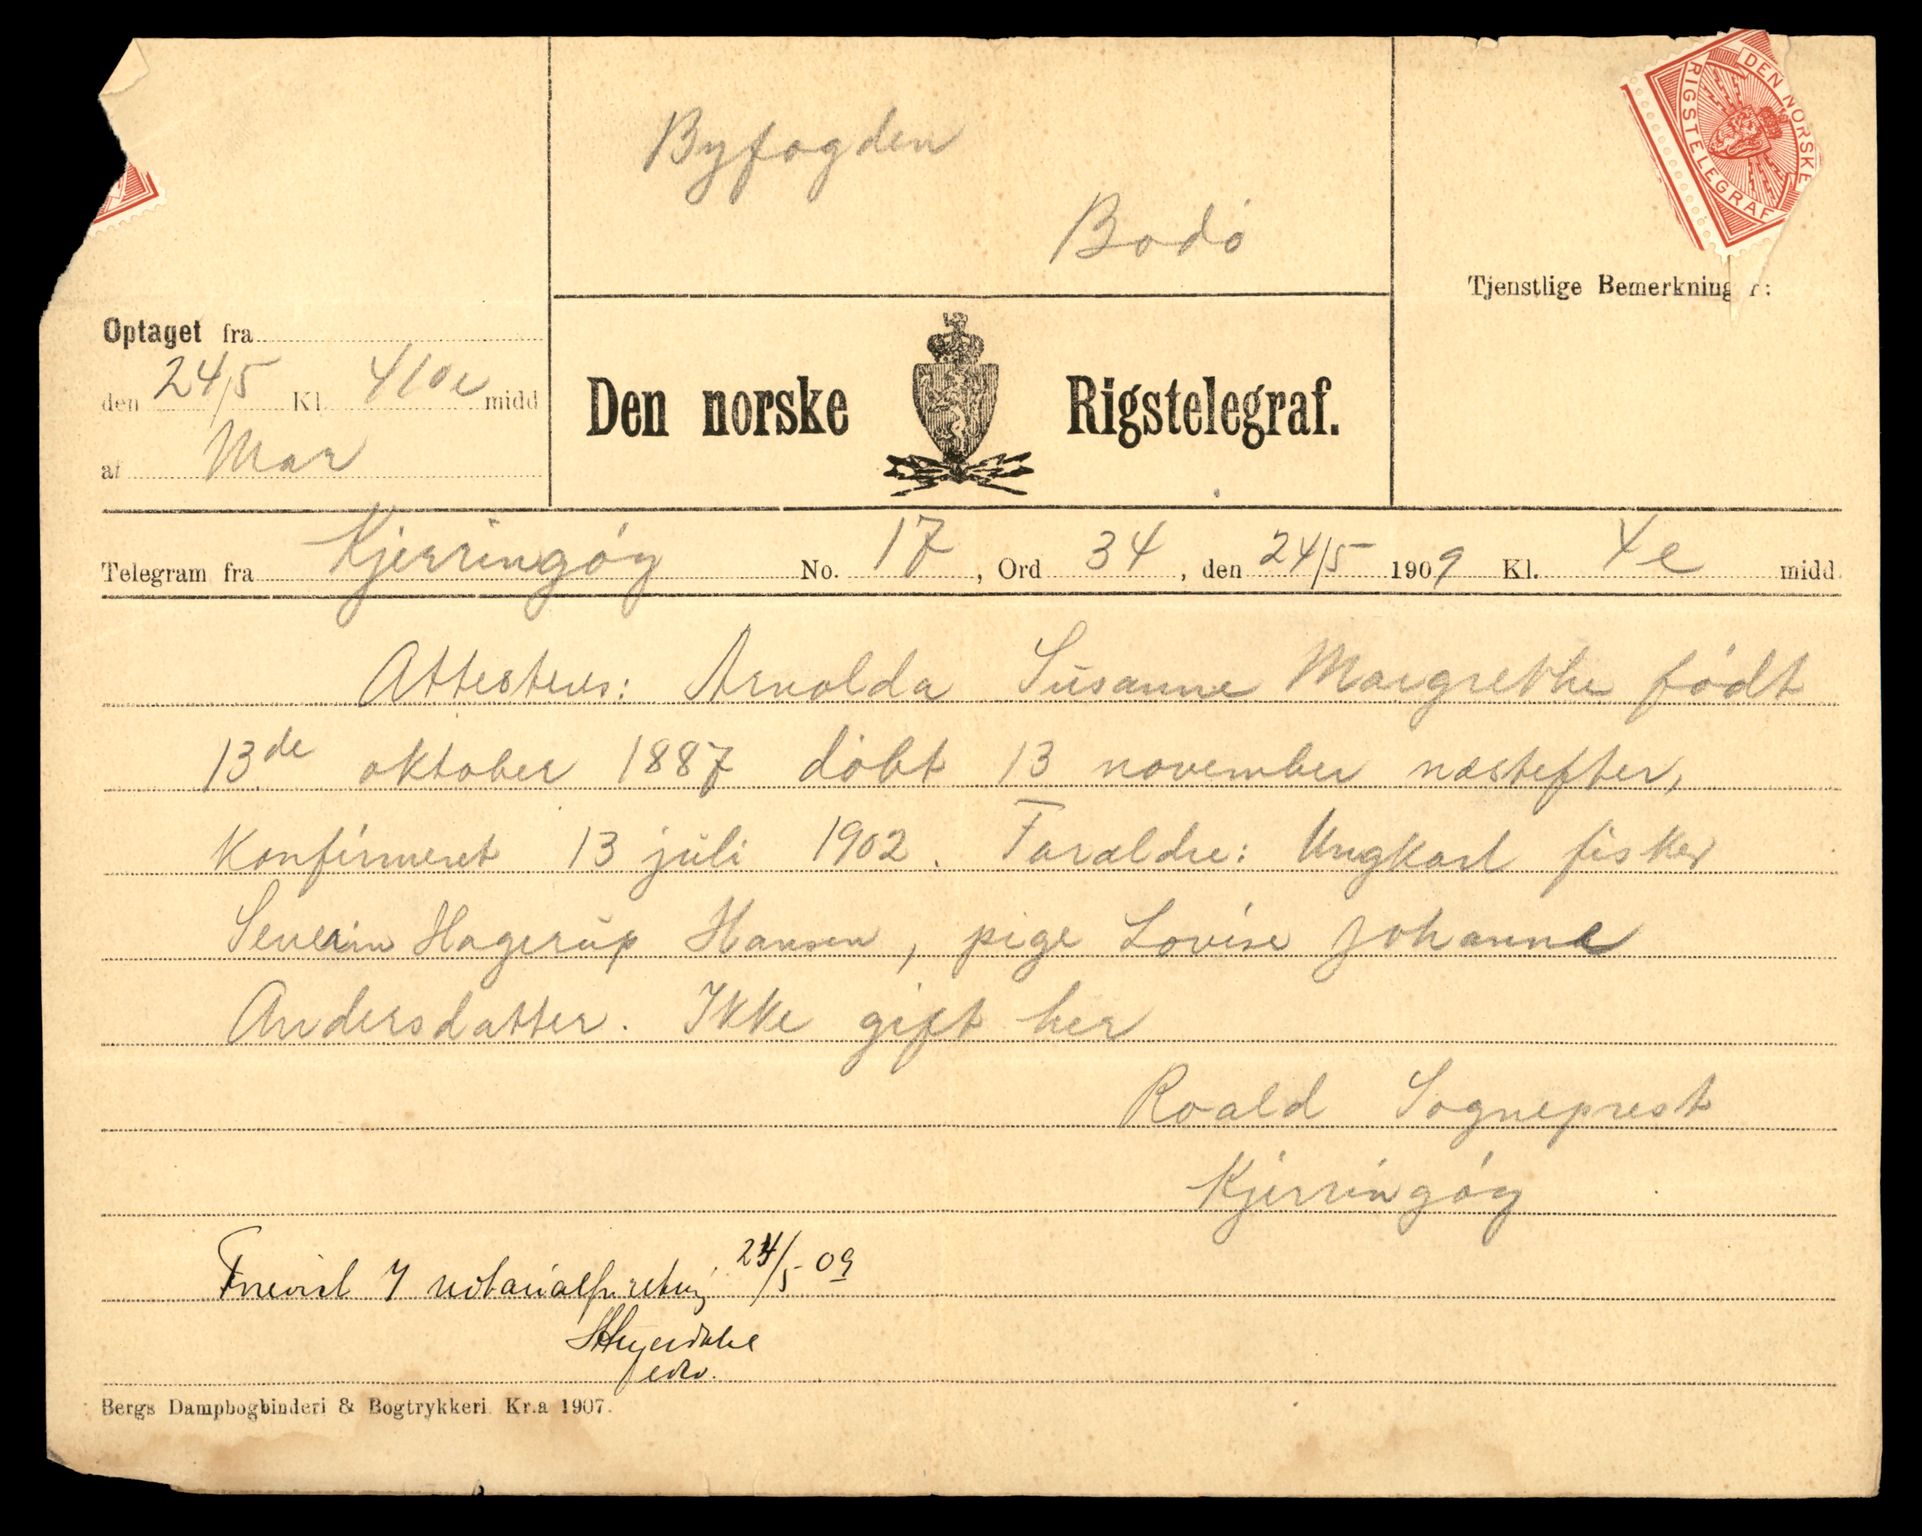 Byfogden
Bodó
DEN NORSKE
RIGSTELEGRAF
Tjenstlige Bemerkning r:
Optaget fra
den 24/5 Kl. 410e midd
af Mar
Den norske Rigstelegraf.
Telegram fra Kjerringóy No. 17, Ord 34, den 24/5 1909 Kl. 4e midd
Attesteres: Arnolda Susanne Margrethe fódt
13de oktober 1887 dóbt 13 november næstefter,
Konfirmeret 13 juli 1902. Forældre: Ungkarl fisker
Severin Hagerup Hansen, pige Lovise Johanne
Andersdatter. Ikke gift her
Roald Sogneprest
Kjerringóy
24/5 09
Bergs Dampbogbinderi & Bogtrykkeri. Kr.a 1907.